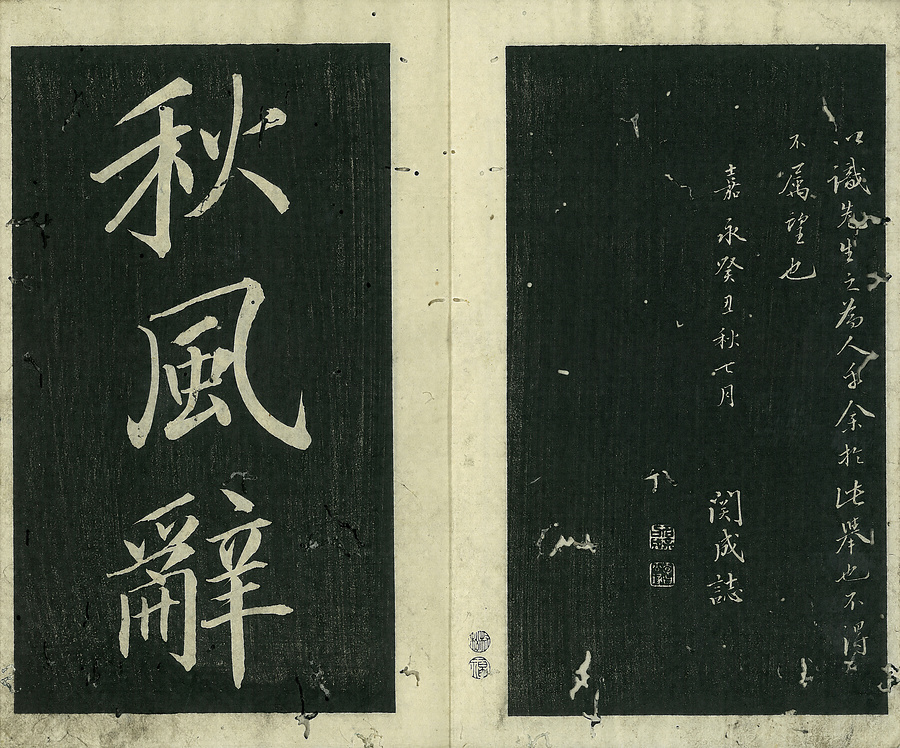 以識先生之為人乎余於此舉也不得
不属望也
嘉永癸丑秋七月
関成誌
秋風辭